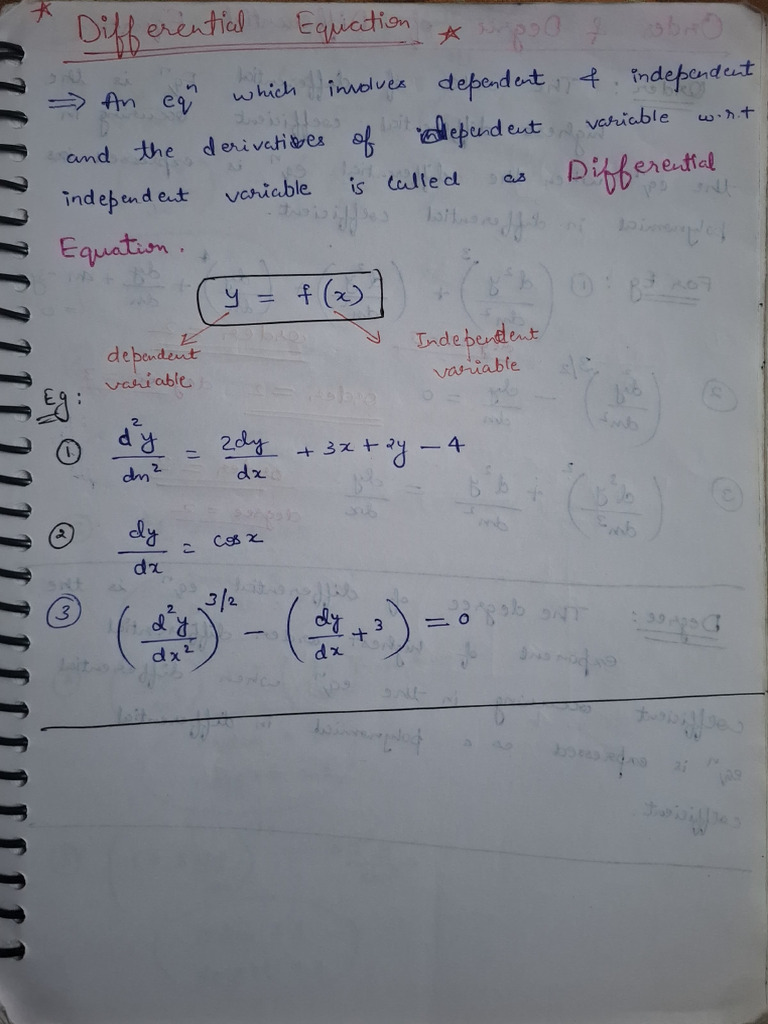 * Differential Equation *
⇒ An eqⁿ which involves dependent & independent
and the derivatives of dependent variable w.r.t
independent variable is called as Differential
Equation.
y = f(x)
dependent variable
Independent variable
Eg:
① d²y/dn² = 2dy/dx + 3x + 2y - 4
② dy/dx = cosx
③ (d²y/dx²)^3/2 - (dy/dx + 3) = 0